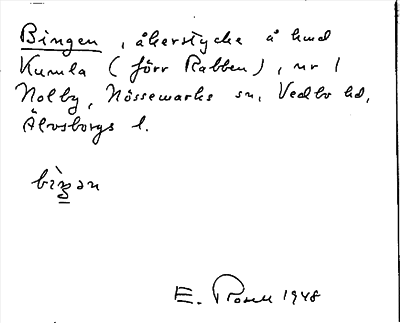 Bingen, åkerstycke å hmd
Kumla (förr Rabben), nr 1
Nolby, Nössemarks sn, Vedbo hd,
Älvsborgs l.
E. 1948